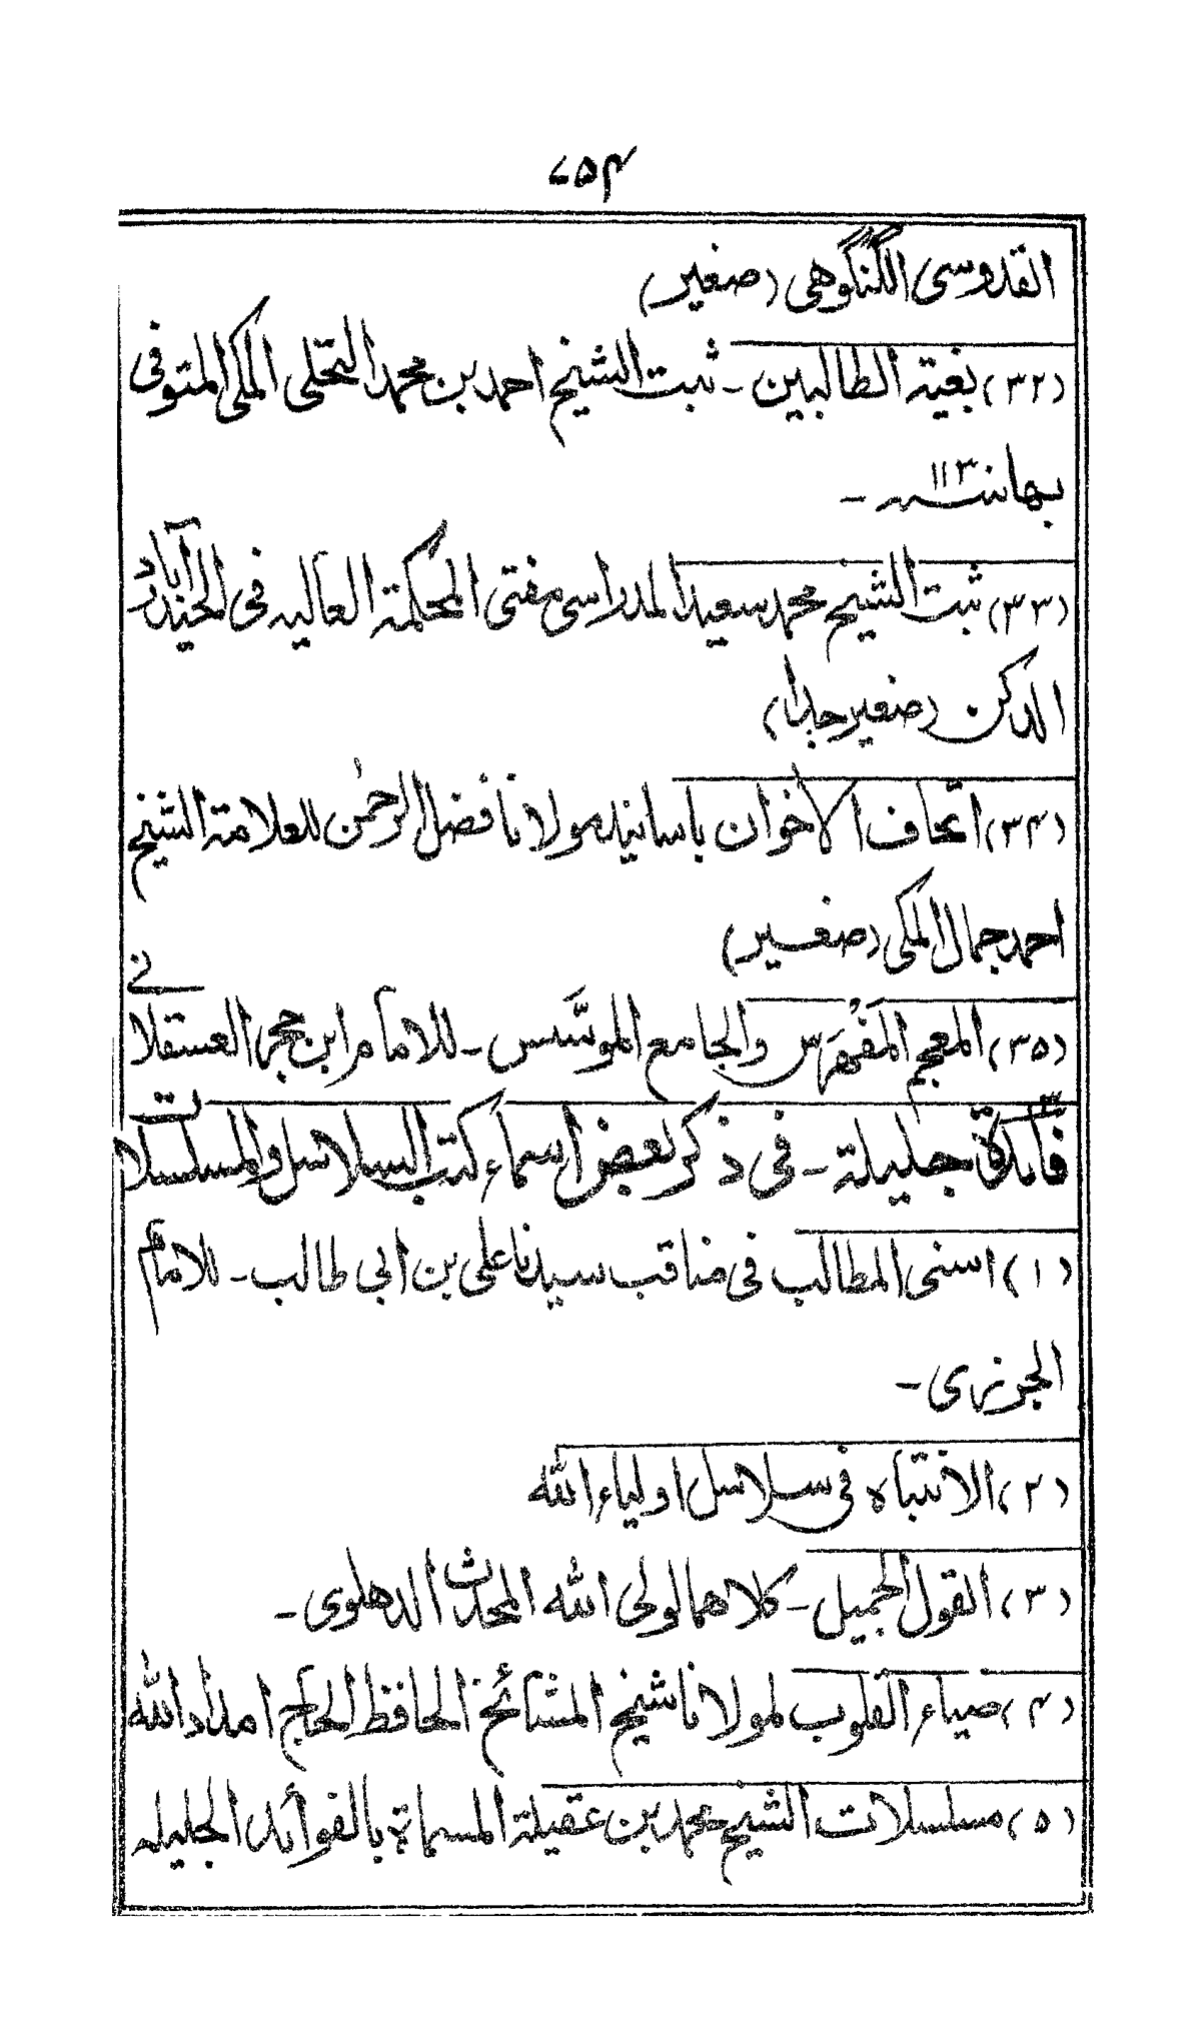 ٢٥٤
القدوسی الگنگوهی (صغیر)
(٣٢) بغیة الطالبین ـ ثبت الشیخ احمد بن محمد النخلی المکی المتوفی
بها سنه ١١٣ ـ
(٣٣) ثبت الشیخ محمد سعید المدراسی مفتی المحکمة العالیه فی الحیدرآباد
الدکن (صغیر جدا)
(٣٤) اتحاف الاخوان باسانید مولانا فضل الرحمٰن للعلامة الشیخ
احمد جمال المکی (صغیر)
(٣٥) المعجم المَفْهَرَس والجامع الموسَّس ـ للامام ابن حجر العسقلانی
فائدة جلیلة ـ فی ذکر بعض اسماء کتب السلاسل والمسلسلات
(١) اسنی المطالب فی مناقب سیدنا علی بن ابی طالب ـ للامام
الجزری ـ
(٢) الانتباه فی سلاسل اولیاء الله
(٣) القول الجمیل ـ کلاهما لولی الله المحدث الدهلوی ـ
(٤) ضیاء القلوب لمولانا شیخ المشائخ الحافظ الحاج امداد الله
(٥) مسلسلات الشیخ محمد بن عقیلة المسماة بالفوائد الجلیله